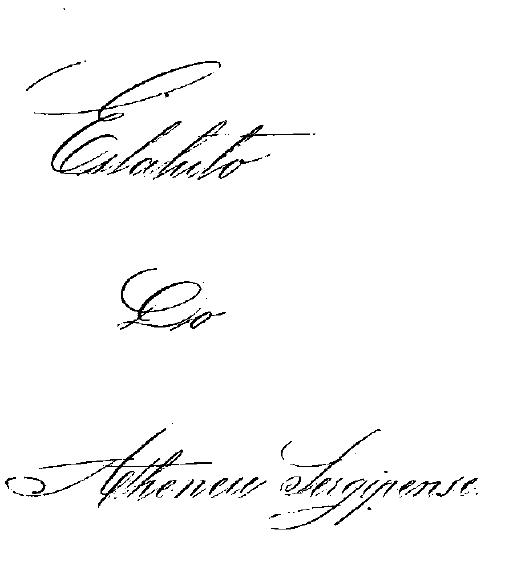 Estatuto
Do
Atheneu Sergipense